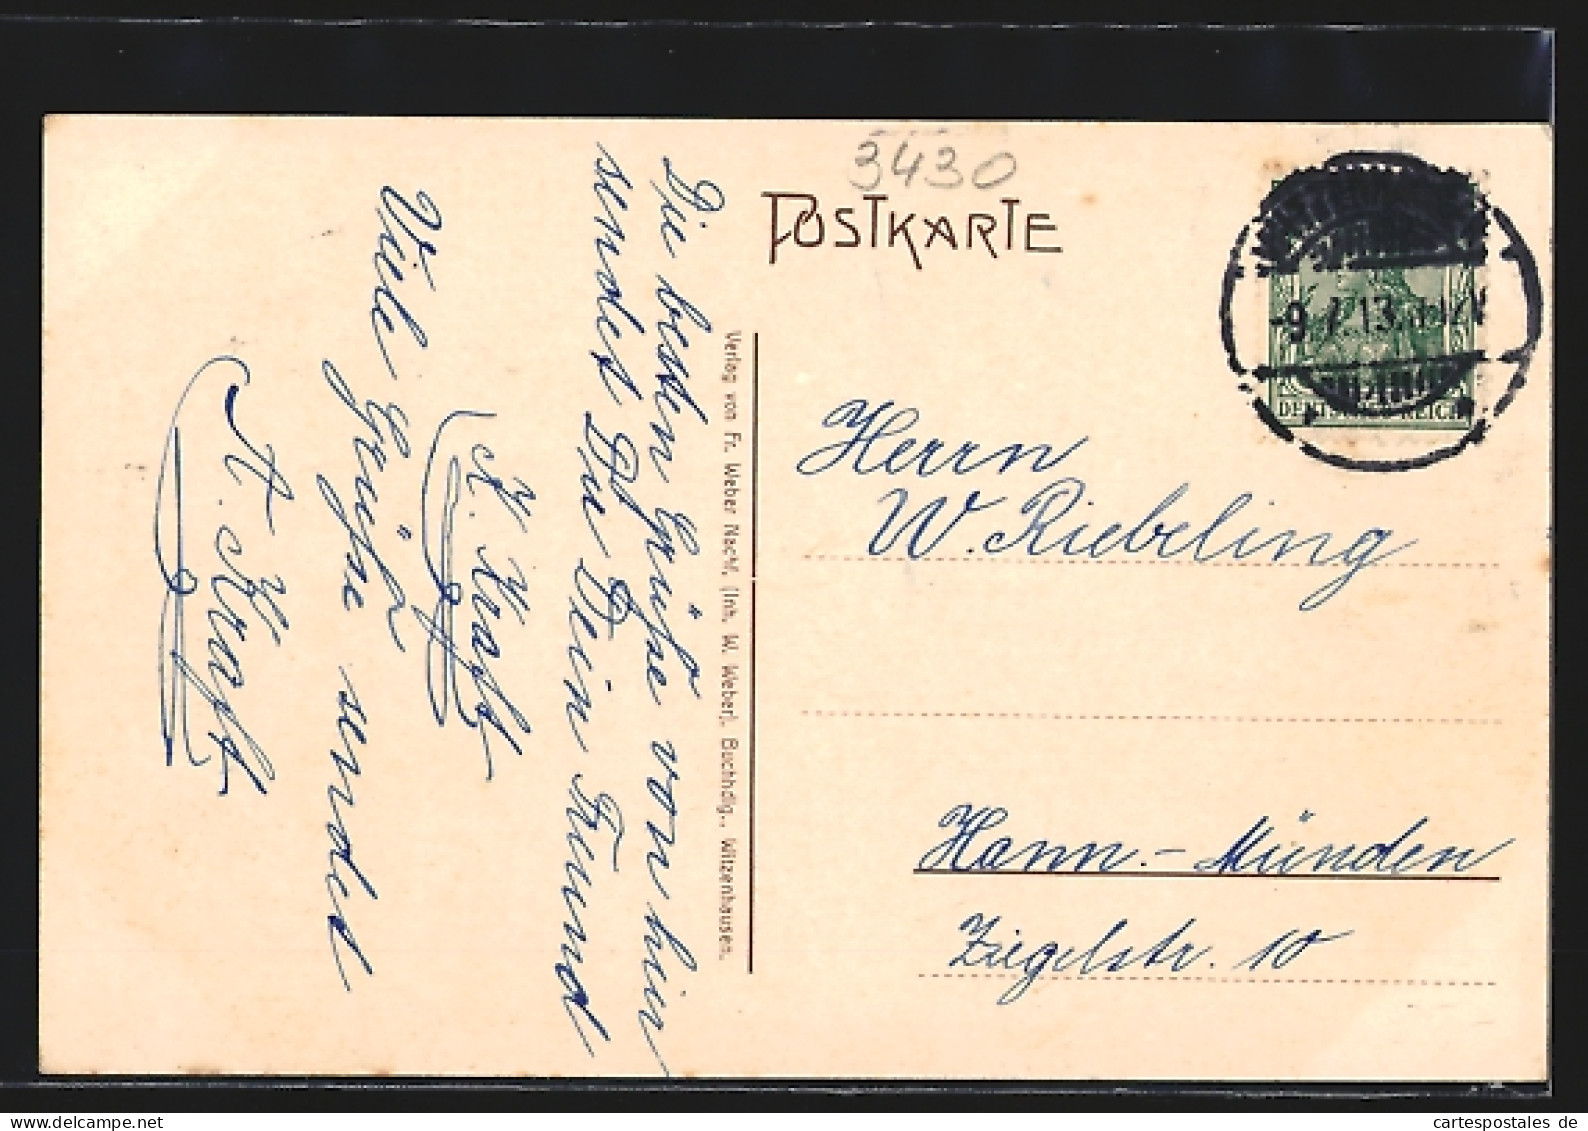 Die besten Grüße von hier
sendet Dir Dein Freund
K. Kraft
Viele Grüße sendet
A. Kraft
Verlag von Fr. Weber Nachf. (Inh. W. Weber), Buchhdlg., Witzenhausen.
3430
POSTKARTE
-9.7.13.
DEUTSCHES REICH
Herrn
W. Riebeling
Hann.-Münden
Ziegelstr. 10
cartespostales de